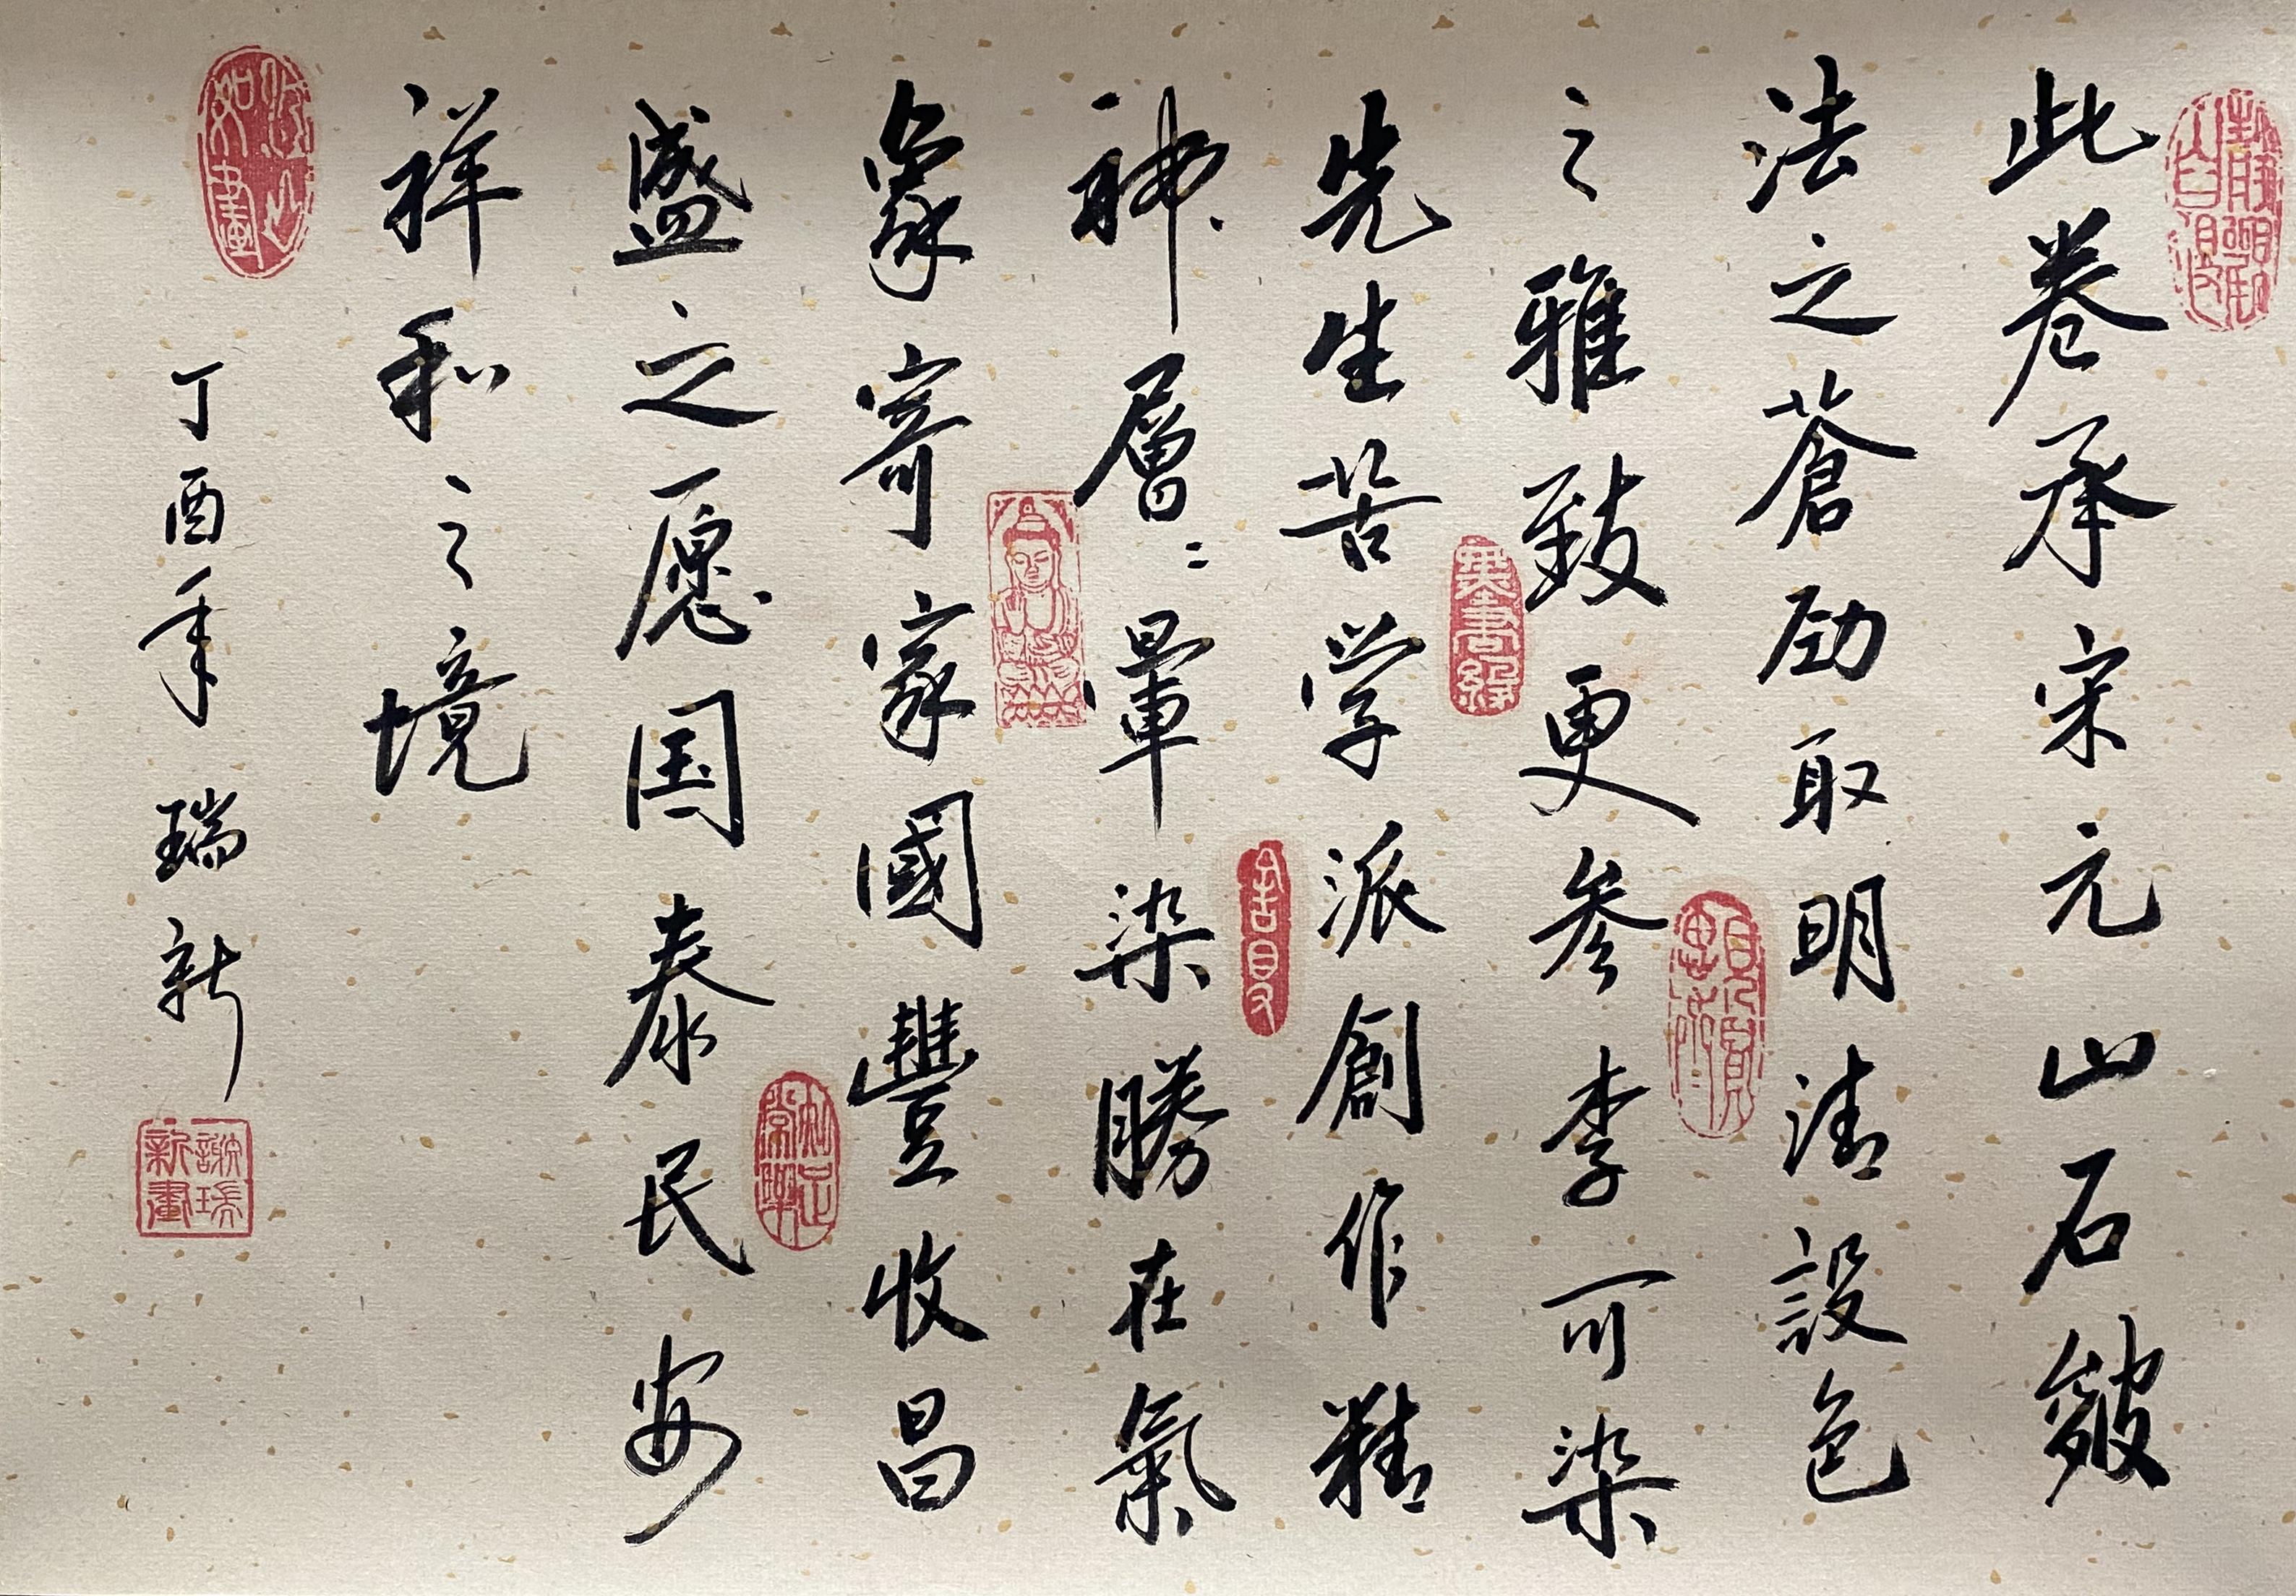 此卷承宋元山石皴
法之蒼劲取明清設色
之雅致更参李可染
先生苦学派創作精
神層﹦暈染勝在氣
象寄家國豐收昌
盛之愿国泰民安
祥和之境
丁酉年 瑞新
江山如畫
知足常樂
謝瑞新畫